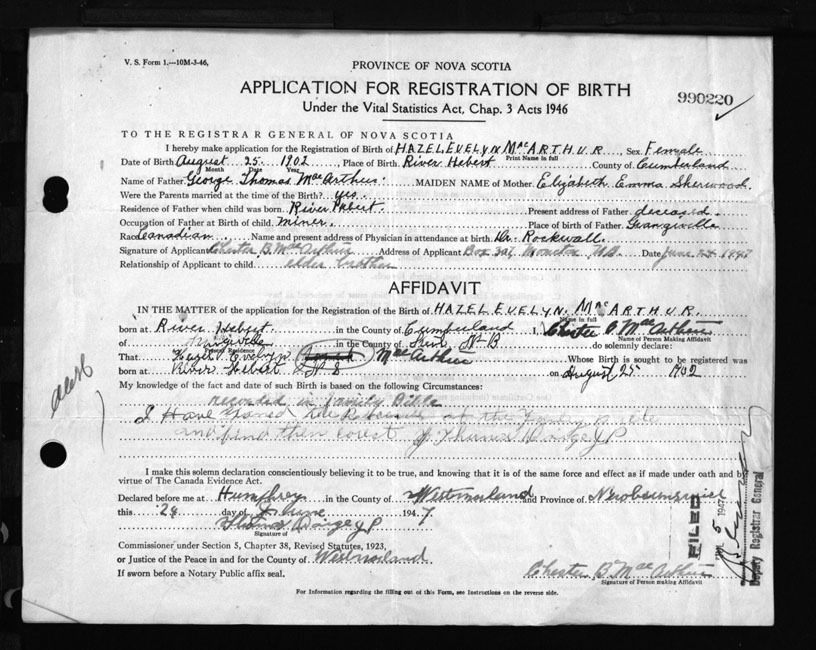 V. S. Form 1.—10M-3-46.
PROVINCE OF NOVA SCOTIA
APPLICATION FOR REGISTRATION OF BIRTH
Under the Vital Statistics Act, Chap. 3 Acts 1946
990220
TO THE REGISTRAR GENERAL OF NOVA SCOTIA
I hereby make application for the Registration of Birth of HAZEL EVELYN MacARTHUR Sex Female
Print Name in full
Date of Birth August 25 1902 Place of Birth River Hebert County of Cumberland
Month Date Year
Name of Father George Thomas MacArthur MAIDEN NAME of Mother Elizabeth Emma Sherwood
Were the Parents married at the time of the Birth? yes
Residence of Father when child was born River Hebert Present address of Father deceased
Occupation of Father at Birth of Child miner Place of Birth of Father
Race Canadian Name and present address of Physician in attendance at birth Dr. Rockwell
Signature of Applicant Chester B. MacArthur Address of Applicant Box 341 Moncton N.B. Date June 1947
Relationship of Applicant to child elder brother
AFFIDAVIT
IN THE MATTER of the application for the Registration of the Birth of HAZEL EVELYN MacARTHUR
Name in full
born at River Hebert in the County of Cumberland I, Chester B. MacArthur
Name of Person Making Affidavit
of in the County of N-B do solemnly declare:
Present Residence
That Hazel Evelyn MacArthur Whose Birth is sought to be registered was
born at River Hebert N S on August 25 1902
My knowledge of the fact and date of such Birth is based on the following Circumstances:
recorded in family Bible
I Have the of the Family Bible
and find them J P
I make this solemn declaration conscientiously believing it to be true, and knowing that it is of the same force and effect as if made under oath and by
virtue of The Canada Evidence Act.
Declared before me at Humphrey in the County of Westmorland and Province of New Brunswick
this 28 day of June 1947
J P
Signature of
Commissioner under Section 5, Chapter 38, Revised Statutes, 1923,
or Justice of the Peace in and for the County of Westmorland
If sworn before a Notary Public affix seal.
Chester B. MacArthur
Signature of Person making Affidavit
For Information regarding the filling out of this Form, see Instructions on the reverse side.
FILED
5 1947
Deputy Registrar General